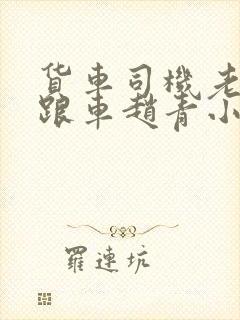 货車司機老
跟車趙青小
羅連坑